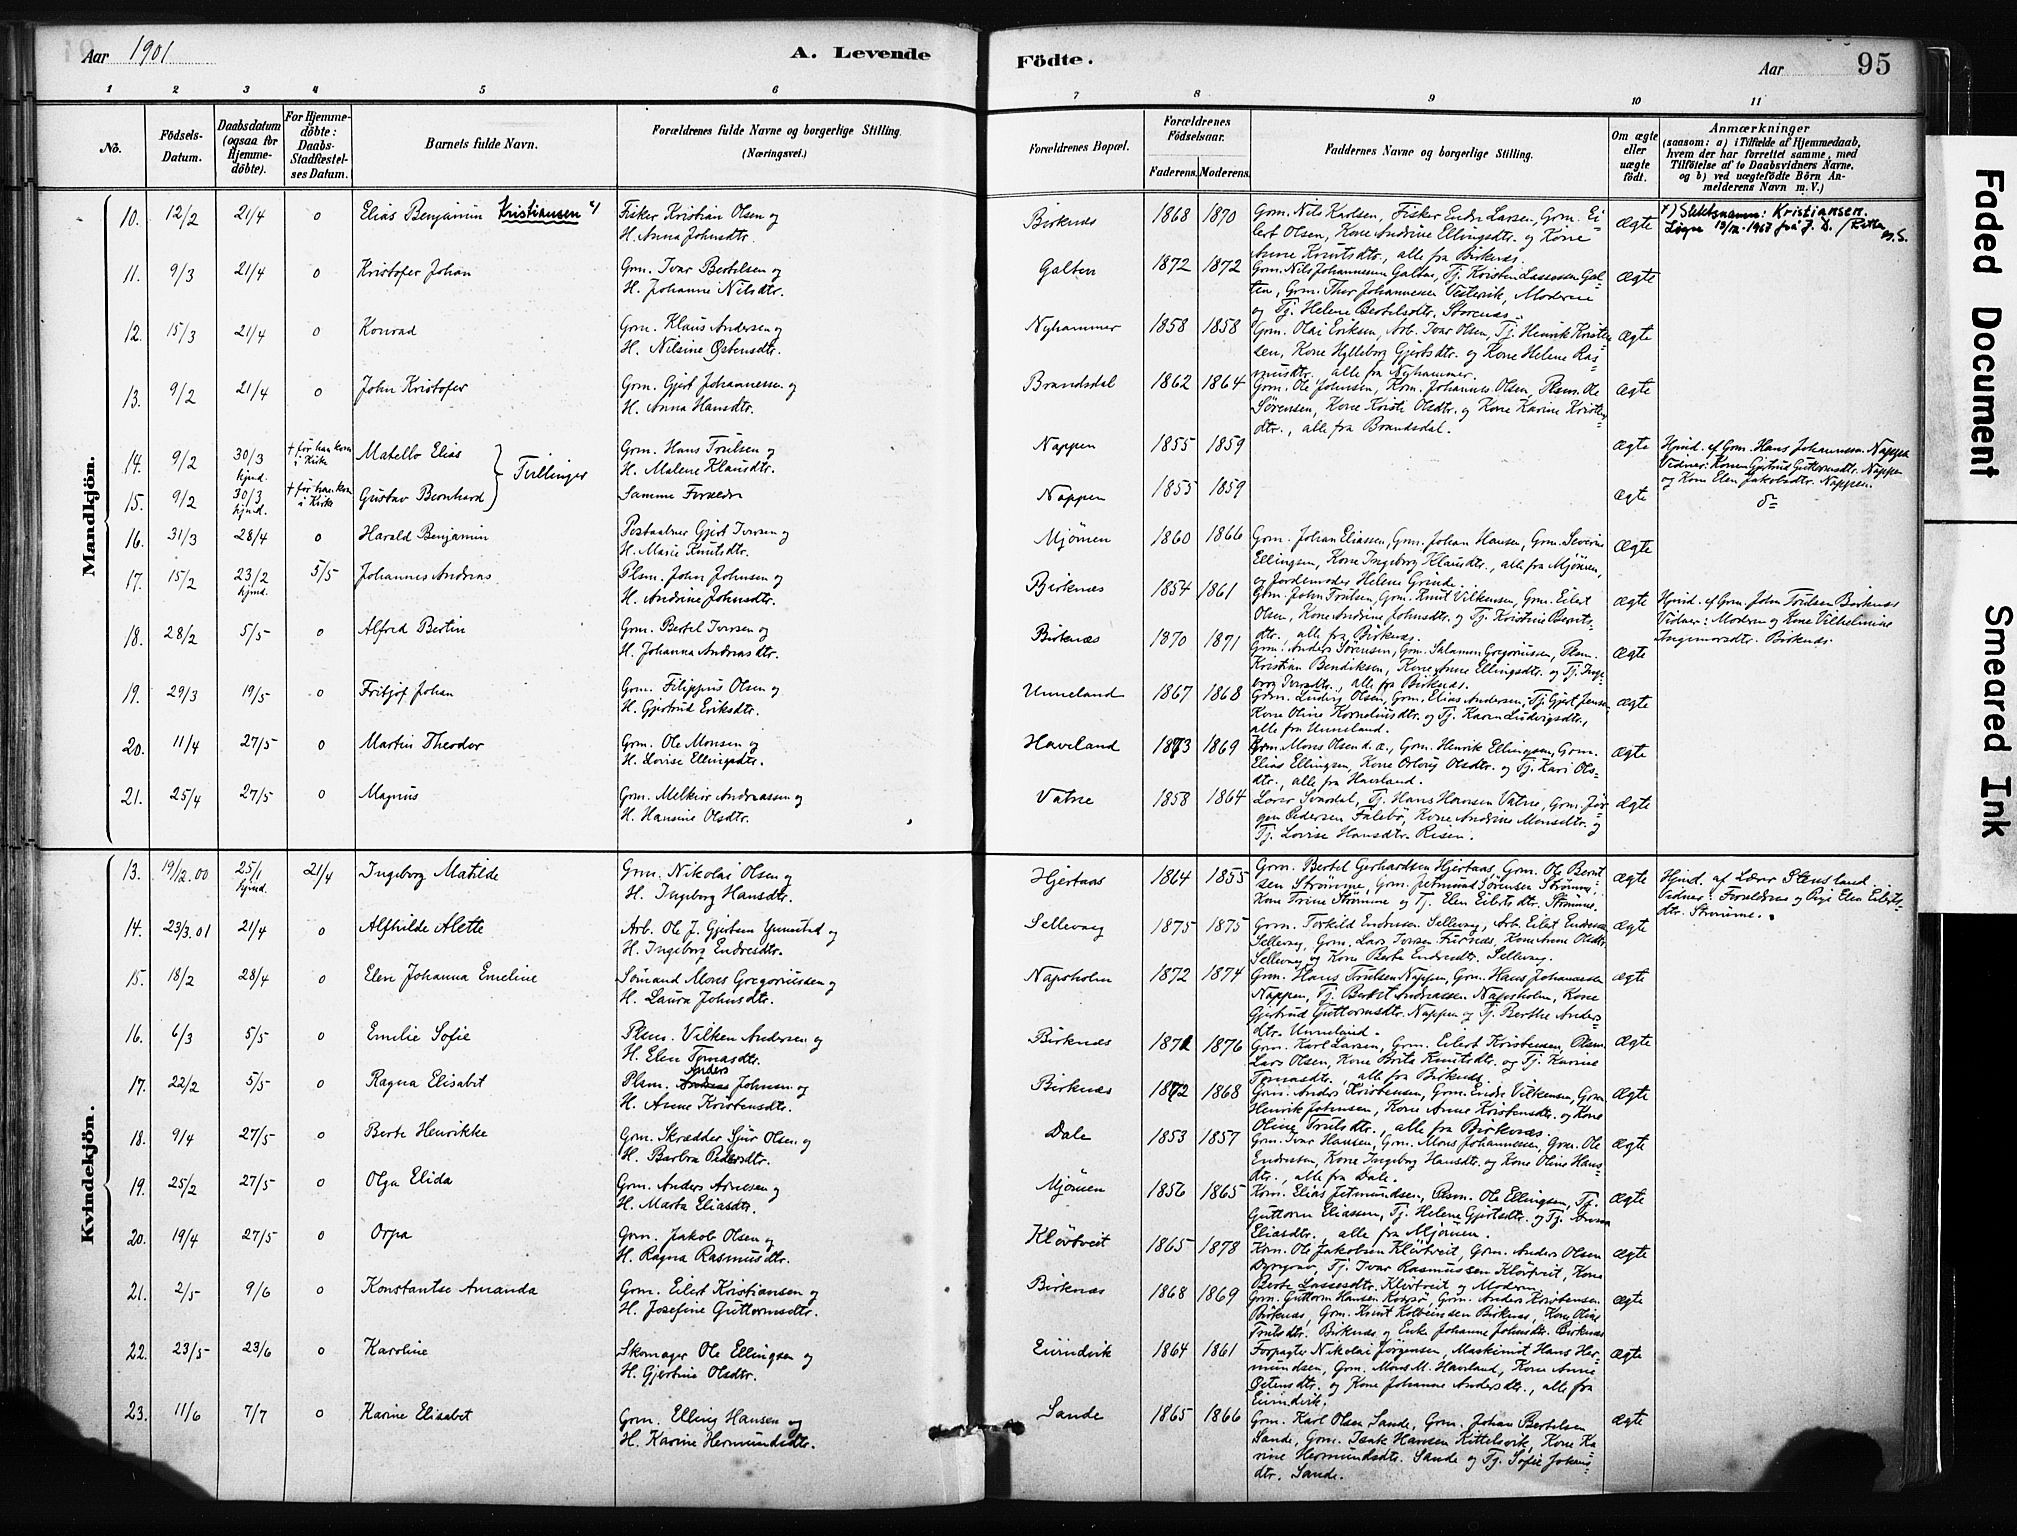 Aar 1901
A. Levende
Födte.
Aar
95
1 2 3 4 5 6 7 8 9 10 11
No.
Födsels-
Datum.
Daabsdatum
(ogsaa for
Hjemme-
döbte).
For Hjemme-
döbte:
Daabs-
Stadfæstel-
ses Datum.
Barnets fulde Navn.
Forældrenes fulde Navne og borgerlige Stilling.
(Næringsvei.)
Forældrenes Bopæl.
Forældrenes
Födselsaar.
Faderens. Moderens.
Faddernes Navne og borgerlige Stilling.
Om ægte
eller
uægte
født.
Anmærkninger
(saasom: a) i Tilfælde af Hjemmedaab,
hvem der har forrettet samme, med
Tilföielse af to Daabsvidners Navne,
og b) ved uægtefödte Börn An-
melderens Navn m. V.)
Mandkjön.
10. 12/2 21/4 0 Elias Benjamin Kristiansen
Fisker Kristian Olsen og
H. Anna Johnsdtr.
Birknæs 1868 1870
Grm. Nils Karlsen, Fisker Endre Larsen, Grm. Ei-
lert Olsen, Kone Andrine Ellingsdtr. og Kone
Anne Knutsdtr., alle fra Birknæs.
Ægte
Slektsnamn: Kristiansen.
11. 9/3 21/4 0 Kristofer Johan
Grm. Ivar Bertilsen og
H. Johanne Nilsdtr.
Galten 1872 1872
Grm. Nils Johannessen Galten, Tj. Kristen Lassesen Gal-
ten, Grm. Thor Johannessen Vesterik, Moderen
og Tj. Helene Bertilsdtr. Storenæs.
Ægte
12. 15/3 21/4 0 Konrad
Grm. Klaus Andersen og
H. Nilsine Ostensdtr.
Nyhammer 1858 1858
Grm. Olai Eriksen, Arb. Ivar Olsen, Tj. Henrik Kristen
sen, Kone Hylleborg Gjertsdtr. og Kone Helene Ras-
musdtr. alle fra Nyhammer.
Ægte
13. 9/2 21/4 0 John Kristofer
Grm. Gjert Johannessen og
H. Anna Hansdtr.
Brandsdal 1862 1864
Grm. Ole Johnsen, Krm. Johannes Olsen, Plsm. Ole
Sørensen, Kone Kristi Olsdtr. og Kone Karine Kristen
dtr., alle fra Brandsdal.
Ægte
14. 9/2 30/3 hjmd. † før han kom i Kirke Matello Elias
Tvillinger
Grm. Hans Trulsen og
H. Malene Klausdtr.
Nappen 1855 1859 Ægte
Hjmd. af Grm. Hans Johannessen Nappen
Vidner: Konen Gjertrud Guttormsdtr. Nappen
og Kone Elen Jakobsdtr. Nappen.
15. 9/2 30/3 hjmd. † før han kom i Kirke Gustav Bernhard
Samme Forældre
Nappen 1855 1859 Ægte
16. 31/3 28/4 0 Harald Benjamin
Postaabner Gjert Iversen og
H. Marie Knutsdtr.
Mjømen 1860 1866
Grm. Johan Eliassen, Grm. Johan Hansen, Grm. Severin
Ellingsen, Kone Ingeborg Klausdtr., alle fra Mjømen,
og Jordemoder Helene Grinde.
Ægte
17. 15/2 23/2 hjmd. 5/5 Johannes Andreas
Plsm. John Johnsen og
H. Andrine Johnsdtr.
Birknæs 1854 1861
Grm. John Trulsen, Grm. Knut Vilkensen, Grm. Eilert
Olsen, Kone Andrine Johnsdtr. og Tj. Kristine Berents-
dtr., alle fra Birknæs.
Ægte
Hjmd. af Grm. John Trulsen Birknæs
Vidner: Modren og Kone Vilhelmine
Ingemarsdtr. Birknæs.
18. 28/2 5/5 0 Alfred Bertin
Grm. Bertel Iversen og
H. Johanna Andreasdtr.
Birknæs 1870 1871
Grm. Anders Sørensen, Grm. Salamon Gregoriussen, Plsm.
Kristian Bendiksen, Kone Anne Ellingsdtr. og Tj. Inge-
borg Iversdtr., alle fra Birknæs.
Ægte
19. 29/3 19/5 0 Fritjof Johan
Grm. Filippus Olsen og
H. Gjertrud Eriksdtr.
Unneland 1867 1868
Grm. Ludvig Olsen, Grm. Elias Andersen, Tj. Gjert Jensen
Kone Oline Korneliusdtr. og Tj. Karen Ludvigsdtr.,
alle fra Unneland.
Ægte
20. 11/4 27/5 0 Martin Theodor
Grm. Ole Monsen og
H. Lovise Ellingsdtr.
Haveland 1873 1869
Krm. Mons Olsen d. æ., Grm. Henrik Ellingsen, Grm.
Elias Ellingsen, Kone Orlaug Olsdtr. og Tj. Kari Ols-
dtr., alle fra Havland.
Ægte
21. 25/4 27/5 0 Magnus
Grm. Melkior Andreassen og
H. Hansine Olsdtr.
Vatne 1858 1864
Lærer Svardal, Tj. Hans Hansen Vatne, Grm. Jør
gen Pedersen Falebø, Kone Andrine Monsdtr. og
Tj. Lovise Hansdtr. Risen.
Ægte
Kvindekjön.
13. 19/12.00 25/1 hjmd. 21/4 Ingeborg Matilde
Grm. Nikolai Olsen og
H. Ingeborg Hansdtr.
Hjertaas 1864 1855
Grm. Bertel Gerhardsen Hjertaas, Grm. Ole Bernt
sen Strømme, Grm. Jetmund Sørensen Strømme,
Kone Trine Strømme og Tj. Elen Eilertsdtr. Strømme.
Ægte
Hjmd. af Lærer Stensland.
Vidner: Forældrene og Pige Elen Eilerts-
dtr. Strømme.
14. 23/3.01 21/4 0 Alfhilde Alette
Arb. Ole J. Gjertsen Ynnestad og
H. Ingeborg Endresdtr.
Sellevaag 1875 1875
Grm. Torkild Endresen Sellevaag, Arb. Eilert Endresen
Sellevaag, Grm. Lars Iversen Furnæs, Kone Anne Olsdtr.
Sellevaag og Kone Berte Endresdtr. Sellevaag.
Ægte
15. 18/2 28/4 0 Elen Johanna Emeline
Sømand Mons Gregoriussen og
H. Laura Johnsdtr.
Napsholm 1872 1874
Grm. Hans Trulsen Nappen, Grm. Hans Johannessen
Nappen, Tj. Bertel Andreassen Napsholm, Kone
Gjertrud Guttormsdtr. Nappen og Tj. Berthe Anders-
dtr. Unneland.
Ægte
16. 6/3 5/5 0 Emilie Sofie
Plsm. Vilken Andersen og
H. Elen Tomasdtr.
Birknæs 1872 1876
Grm. Karl Larsen, Grm. Eilert Kristensen, Plsm.
Lars Olsen, Kone Brita Knutsdtr. og Tj. Karine
Tomasdtr., alle fra Birknæs.
Ægte
17. 22/2 5/5 0 Ragna Elisabet
Plsm. Anders Johnsen og
H. Anne Kristensdtr.
Birknæs 1872 1868
Grm. Anders Kristensen, Grm. Endre Vilkensen, Grm.
Henrik Johnsen, Kone Anne Kristensdtr. og Kone
Oline Trulsdtr., alle fra Birknæs.
Ægte
18. 9/4 27/5 0 Berte Henrikke
Grm. Skrædder Sjur Olsen og
H. Barbra Pedersdtr.
Dale 1853 1857
Grm. Ivar Hansen, Grm. Mons Johannessen, Grm. Ole
Endresen, Kone Ingeborg Hansdtr. og Kone Oline Hans-
dtr., alle fra Dale.
Ægte
19. 25/2 27/5 0 Olga Elida
Grm. Anders Arnesen og
H. Marta Eliasdtr.
Mjømen 1856 1865
Krm. Elias Jetmundsen, Plsm. Ole Ellingsen, Tj.
Guttorm Eliassen, Tj. Helene Gjertsdtr. og Tj.
Eliasdtr., alle fra Mjømen.
Ægte
20. 19/4 27/5 0 Orpa
Grm. Jakob Olsen og
H. Ragna Rasmusdtr.
Kløvtveit 1865 1878
Krm. Ole Jakobsen Kløvtveit, Grm. Anders Olsen
Dyrgrav, Tj. Ivar Rasmussen Kløvtveit, Kone
Berte Lassesdtr. Kløvtveit og Modren.
Ægte
21. 2/5 9/6 0 Konstantse Amanda
Grm. Eilert Kristiansen og
H. Josefine Guttormsdtr.
Birknæs 1868 1869
Grm. Guttorm Hansen Kversø, Grm. Anders Kristensen
Birknæs, Grm. Knut Kolbeinssen Birknæs, Kone Oline
Trulsdtr. Birknæs og Enke Johanne Johnsdtr. Birknæs
Ægte
22. 23/5 23/6 0 Karoline
Skomager Ole Ellingsen og
H. Gjertine Olsdtr.
Eivindvik 1864 1861
Forpagter Nikolai Jørgensen, Maskinist Hans Her-
mundsen, Grm. Mons M. Haveland, Kone Anne
Østensdtr. og Kone Johanne Andersdtr., alle fra
Eivindvik.
Ægte
23. 11/6 7/7 0 Karine Elisabet
Grm. Elling Hansen og
H. Karine Hermundsdtr.
Sande 1865 1866
Grm. Karl Olsen Sande, Grm. Johan Bertelsen
Sande, Grm. Isak Hansen Kittelsvik, Kone Ka-
rine Hermundsdtr. Sande og Tj. Sofie Johans
dtr. Sande.
Ægte
Faded Document
Smeared Ink